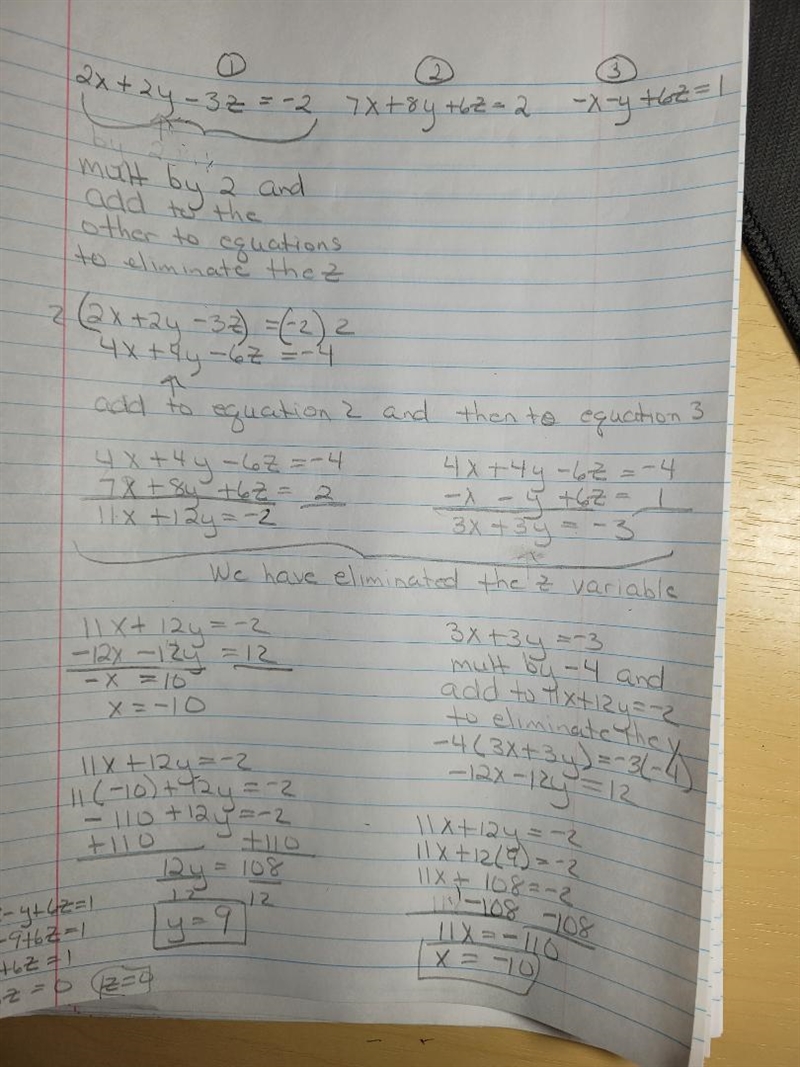 ① ② ③
2x + 2y - 3z = -2 7x + 8y + 6z = 2 -x - y + 6z = 1
by 2
mult by 2 and
add to the
other to equations
to eliminate the z
2 (2x + 2y - 3z) = (-2) 2
4x + 4y - 6z = -4
add to equation 2 and then to equation 3
4x + 4y - 6z = -4
7x + 8y + 6z = 2
11x + 12y = -2
4x + 4y - 6z = -4
-x - y + 6z = 1
3x + 3y = -3
We have eliminated the z variable
11x + 12y = -2
-12x - 12y = 12
-x = 10
x = -10
3x + 3y = -3
mult by -4 and
add to 11x + 12y = -2
to eliminate the y
-4 (3x + 3y) = -3 (-4)
-12x - 12y = 12
11x + 12y = -2
11(-10) + 12y = -2
-110 + 12y = -2
+110 +110
12y = 108
12 12
y = 9
11x + 12y = -2
11x + 12(9) = -2
11x + 108 = -2
-108 -108
11x = -110
x = -10
- y + 6z = 1
- 9 + 6z = 1
+ 6z = 1
z = 0 z = 0